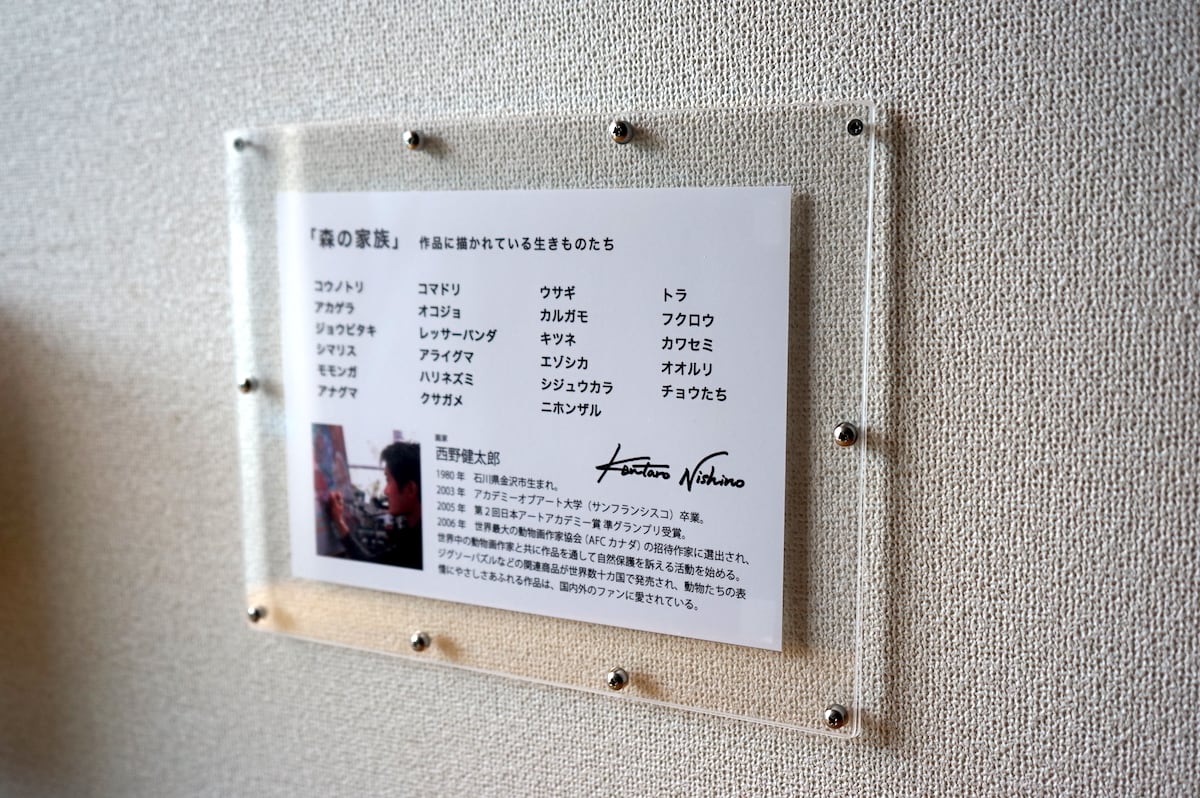 「森の家族」 作品に描かれている生きものたち
コウノトリ
アカゲラ
ジョウビタキ
シマリス
モモンガ
アナグマ
コマドリ
オコジョ
レッサーパンダ
アライグマ
ハリネズミ
クサガメ
ウサギ
カルガモ
キツネ
エゾシカ
シジュウカラ
ニホンザル
トラ
フクロウ
カワセミ
オオルリ
チョウたち
画家
西野健太郎
Kentaro Nishino
1980年 石川県金沢市生まれ。
2003年 アカデミーオブアート大学（サンフランシスコ）卒業。
2005年 第2回日本アートアカデミー賞 準グランプリ受賞。
2006年 世界最大の動物画作家協会（AFC カナダ）の招待作家に選出され、
世界中の動物画作家と共に作品を通して自然保護を訴える活動を始める。
ジグソーパズルなどの関連商品が世界数十カ国で発売され、動物たちの表
情にやさしさあふれる作品は、国内外のファンに愛されている。